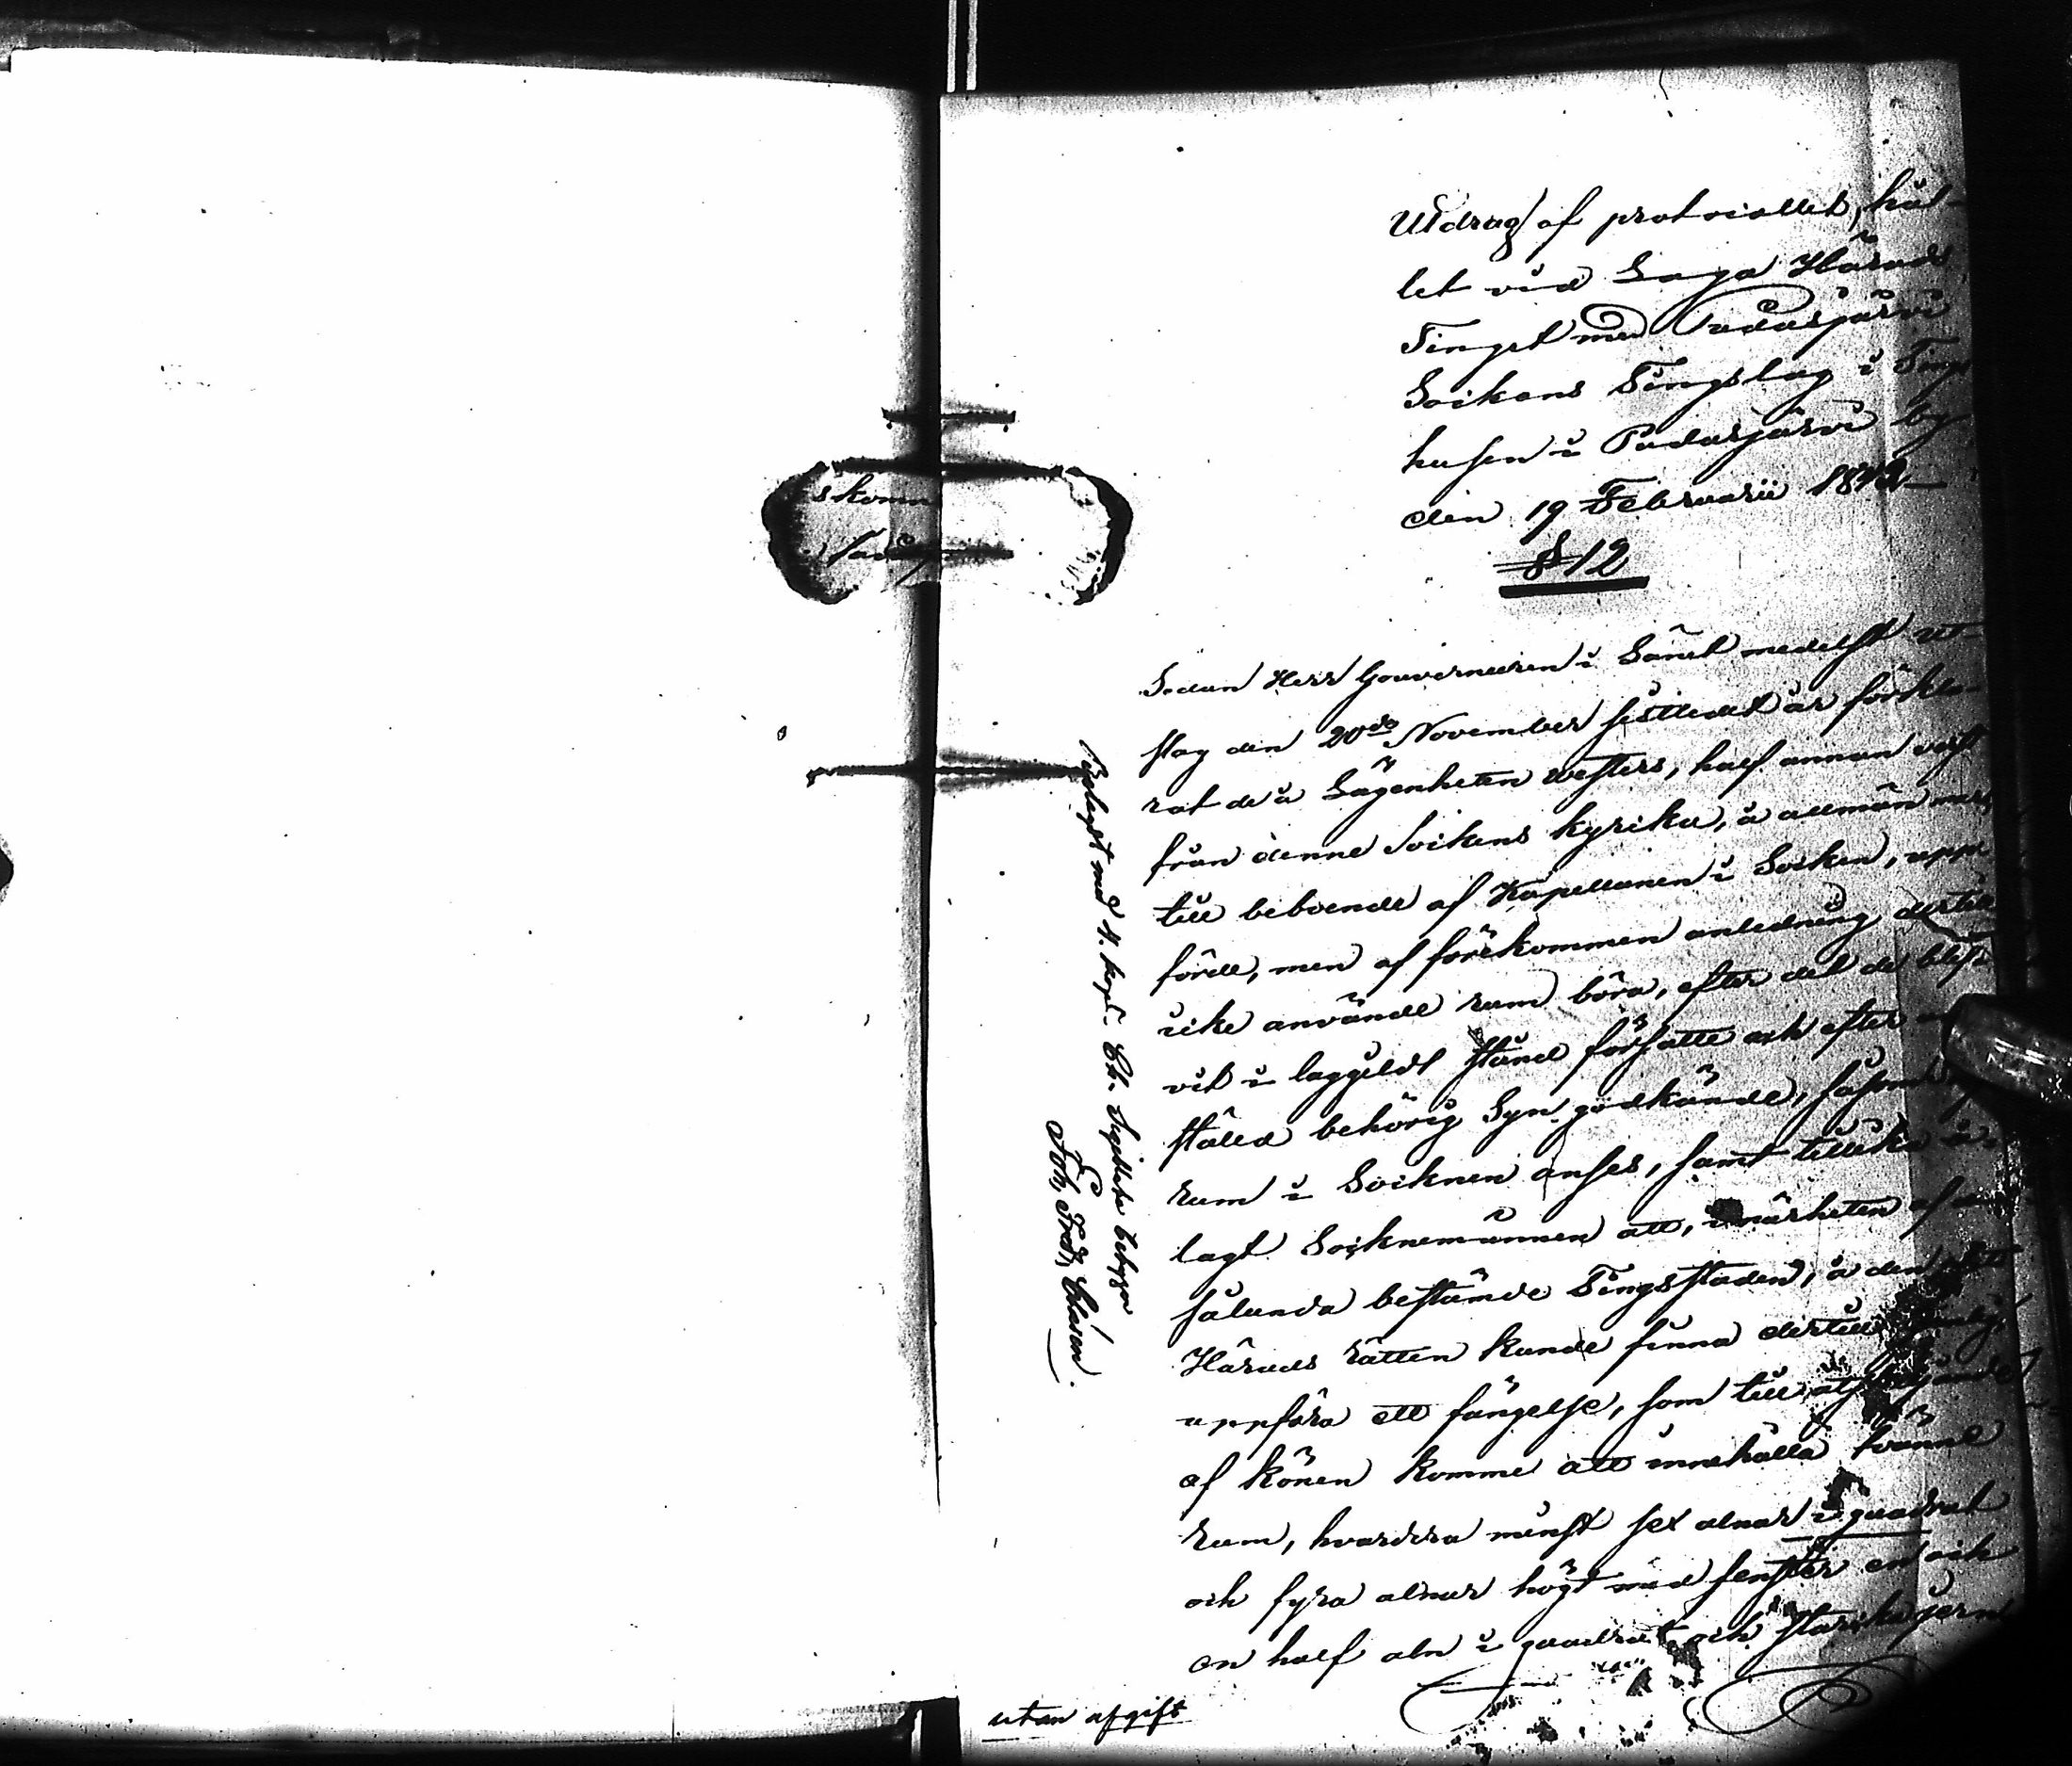 Utdrag af protocollet, hål-
let vid Laga Härads
Tinget med Pudasjärvi
Sockens Tingslag i Tings
husen i Pudasjärvi by
den 19 Februarii 1842
§ 12
Sedan Herr Gouverneuren i Länet medelst ut-
slag den 20de November sistledet år förkla-
rat de å Lägenheten westers, half annan verst
från denne Sockens kyrka, å allmän
till beboende af Kapellanen i Socken, upp
förde, men af förekommen anledning dertill
icke använde rum böra, efter det de blif-
vit i laggildt stånd försatte och efter
ställd behörig Syn godkände, såsom
rum i Socknen anses, samt tillika å-
lagt Socknemännen att, i närheten af
sålunda bestämde Tingsstaden, å den
Härads rätten kunde finna dertill
uppföra ett fängelse, som till åtskiljande
af könen komme att innehålla tvänne
rum, hvardera minst sex alnar i quadrat
och fyra alnar högt med fenster en och
en half aln i quadrat och starcka jern
utan afgift
Belagt med 4. Ch. Sigillata betygar
Joh. Fred. Clasen.
skom